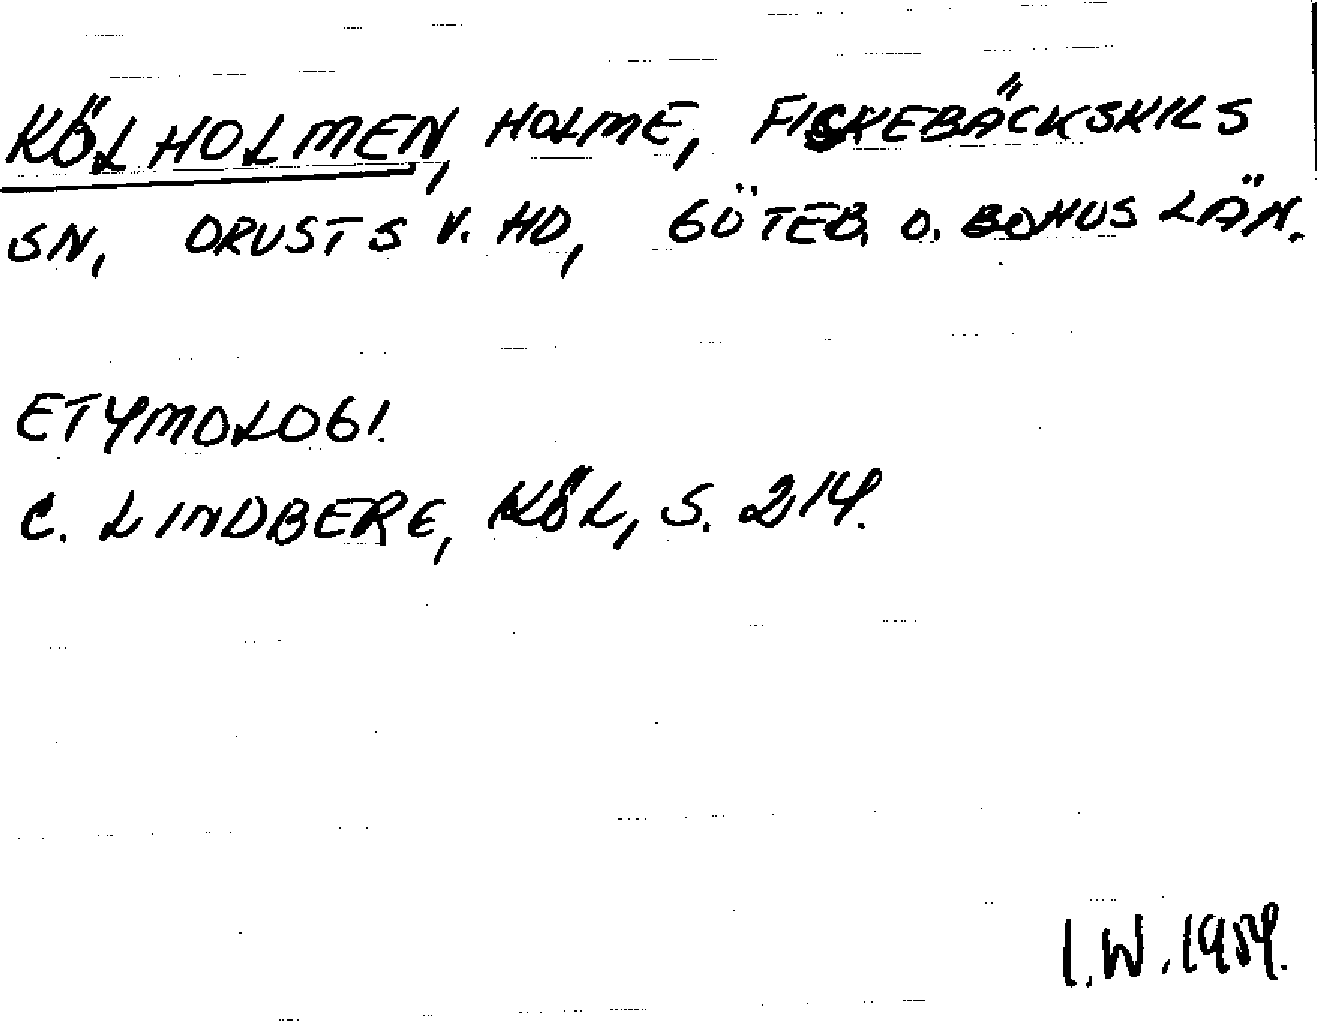 KÖLHOLMEN, HOLME, FISKEBÄCKSKILS
SN, ORUSTS V. HD, GÖTEB. O. BOHUS LÄN.
ETYMOLOGI.
C. LINDBERG, KÖL, S. 214.
I.W. 1954.